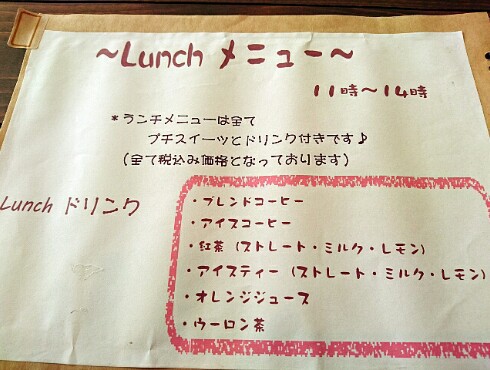 ~Lunch メニュー~
11時~14時
*ランチメニューは全て
プチスイーツとドリンク付きです♪
(全て税込み価格となっております)
Lunch ドリンク
・ブレンドコーヒー
・アイスコーヒー
・紅茶 (ストレート・ミルク・レモン)
・アイスティー (ストレート・ミルク・レモン)
・オレンジジュース
・ウーロン茶